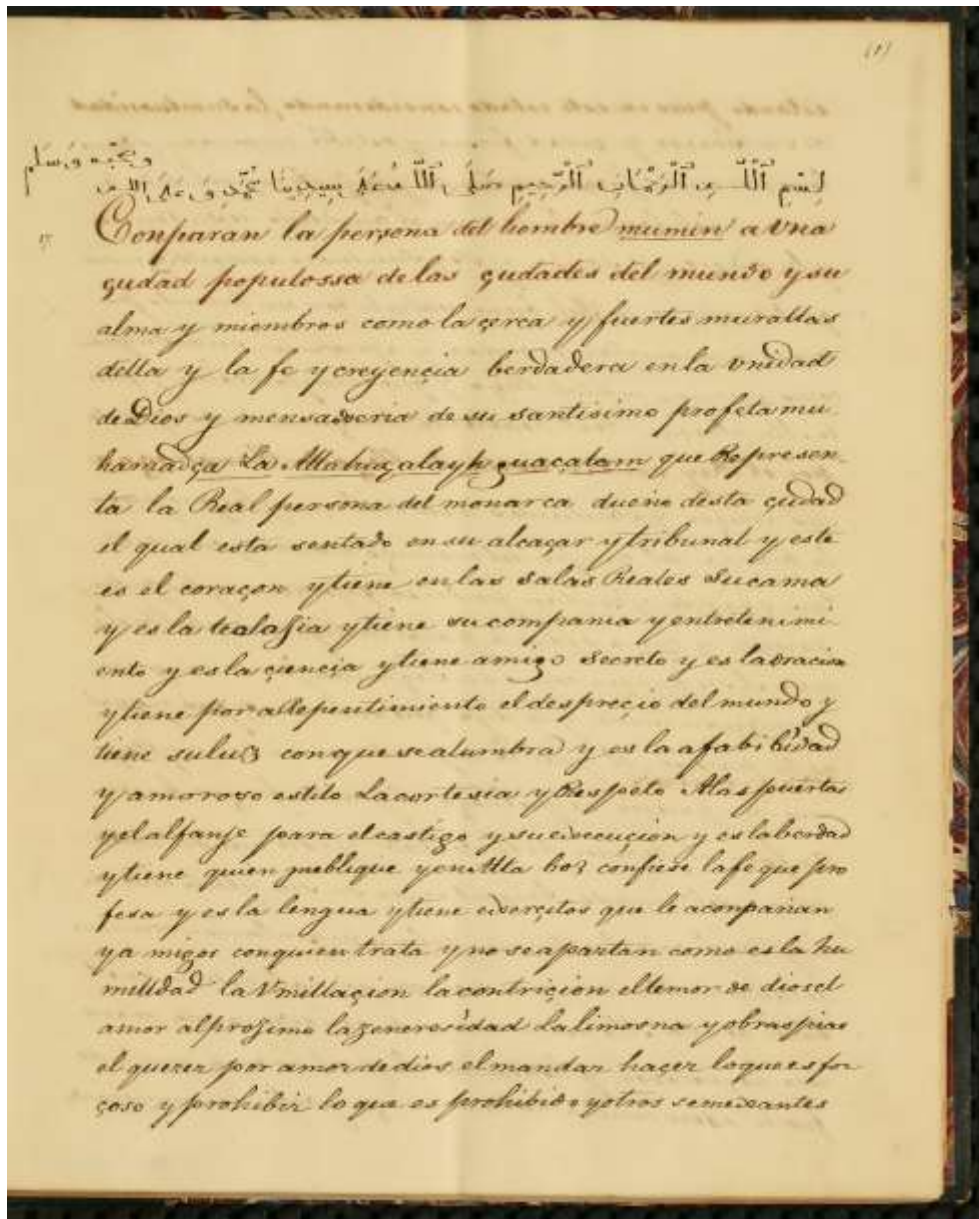 (1)
وصحبه وسلم
بسم الله الرحمان الرحيم صلى الله على سيدنا محمد وعلى اله
Conparan la persona del hombre mumin a vna
çiudad populossa de las çiudades del mundo y su
alma y miembros como la çerca y fuertes murallas
della y la fe y creyençia berdadera en la vnidad
de Dios y mensaxeria de su santisimo profeta mu
hamad ça La Allahu alayhi guaçalam que Represen
ta la Real persona del monarca dueño desta çiudad
el qual esta sentado en su alcaçar y tribunal y este
es el coraçon y tiene en las salas Reales su cama
y es la y tiene su compania y entretenimi
ento y es la çiencia y tiene amigo secreto y es la oraçion
y tiene por allepentimiento el despreçio del mundo y
tiene su luz con que se alumbra y es la afabilidad
y amoroso estilo La cortesia y Respeto A las puertas
y el alfanje para el castigo y su execuçion y es la berdad
y tiene quien publique y en Alta boz confiese la fe que pro
fesa y es la lengua y tiene exerçitos que le aconpañan
y amigos con quien trata y no se apartan como es la hu
milldad la Vmillaçion la contriçion el temor de dios el
amor al proximo la generosidad la limosna y obras pias
el querer por amor de dios el mandar haçer lo que es for
çoso y prohibir lo que es prohibido y otros semexantes